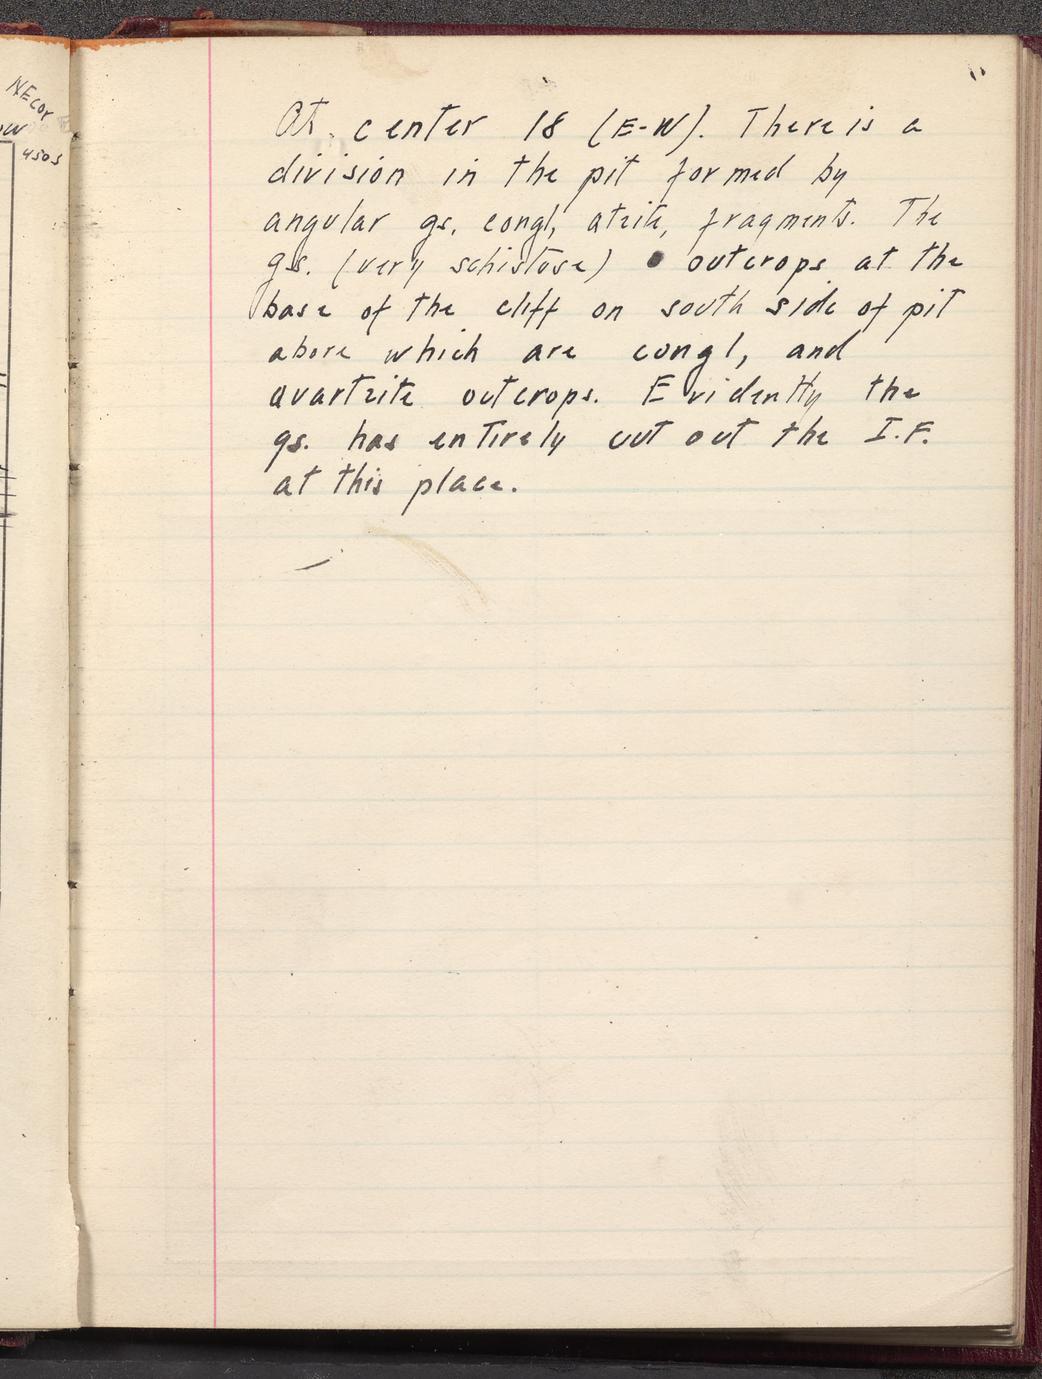 NEcor
W
450S
At center 18 (E-W). There is a
division in the pit formed by
angular gs. congl, qtzite, fragments. The
gs. (very schistose) outcrops at the
base of the cliff on south side of pit
above which are congl, and
quartzite outcrops. Evidently the
gs. has entirely cut out the I.F.
at this place.